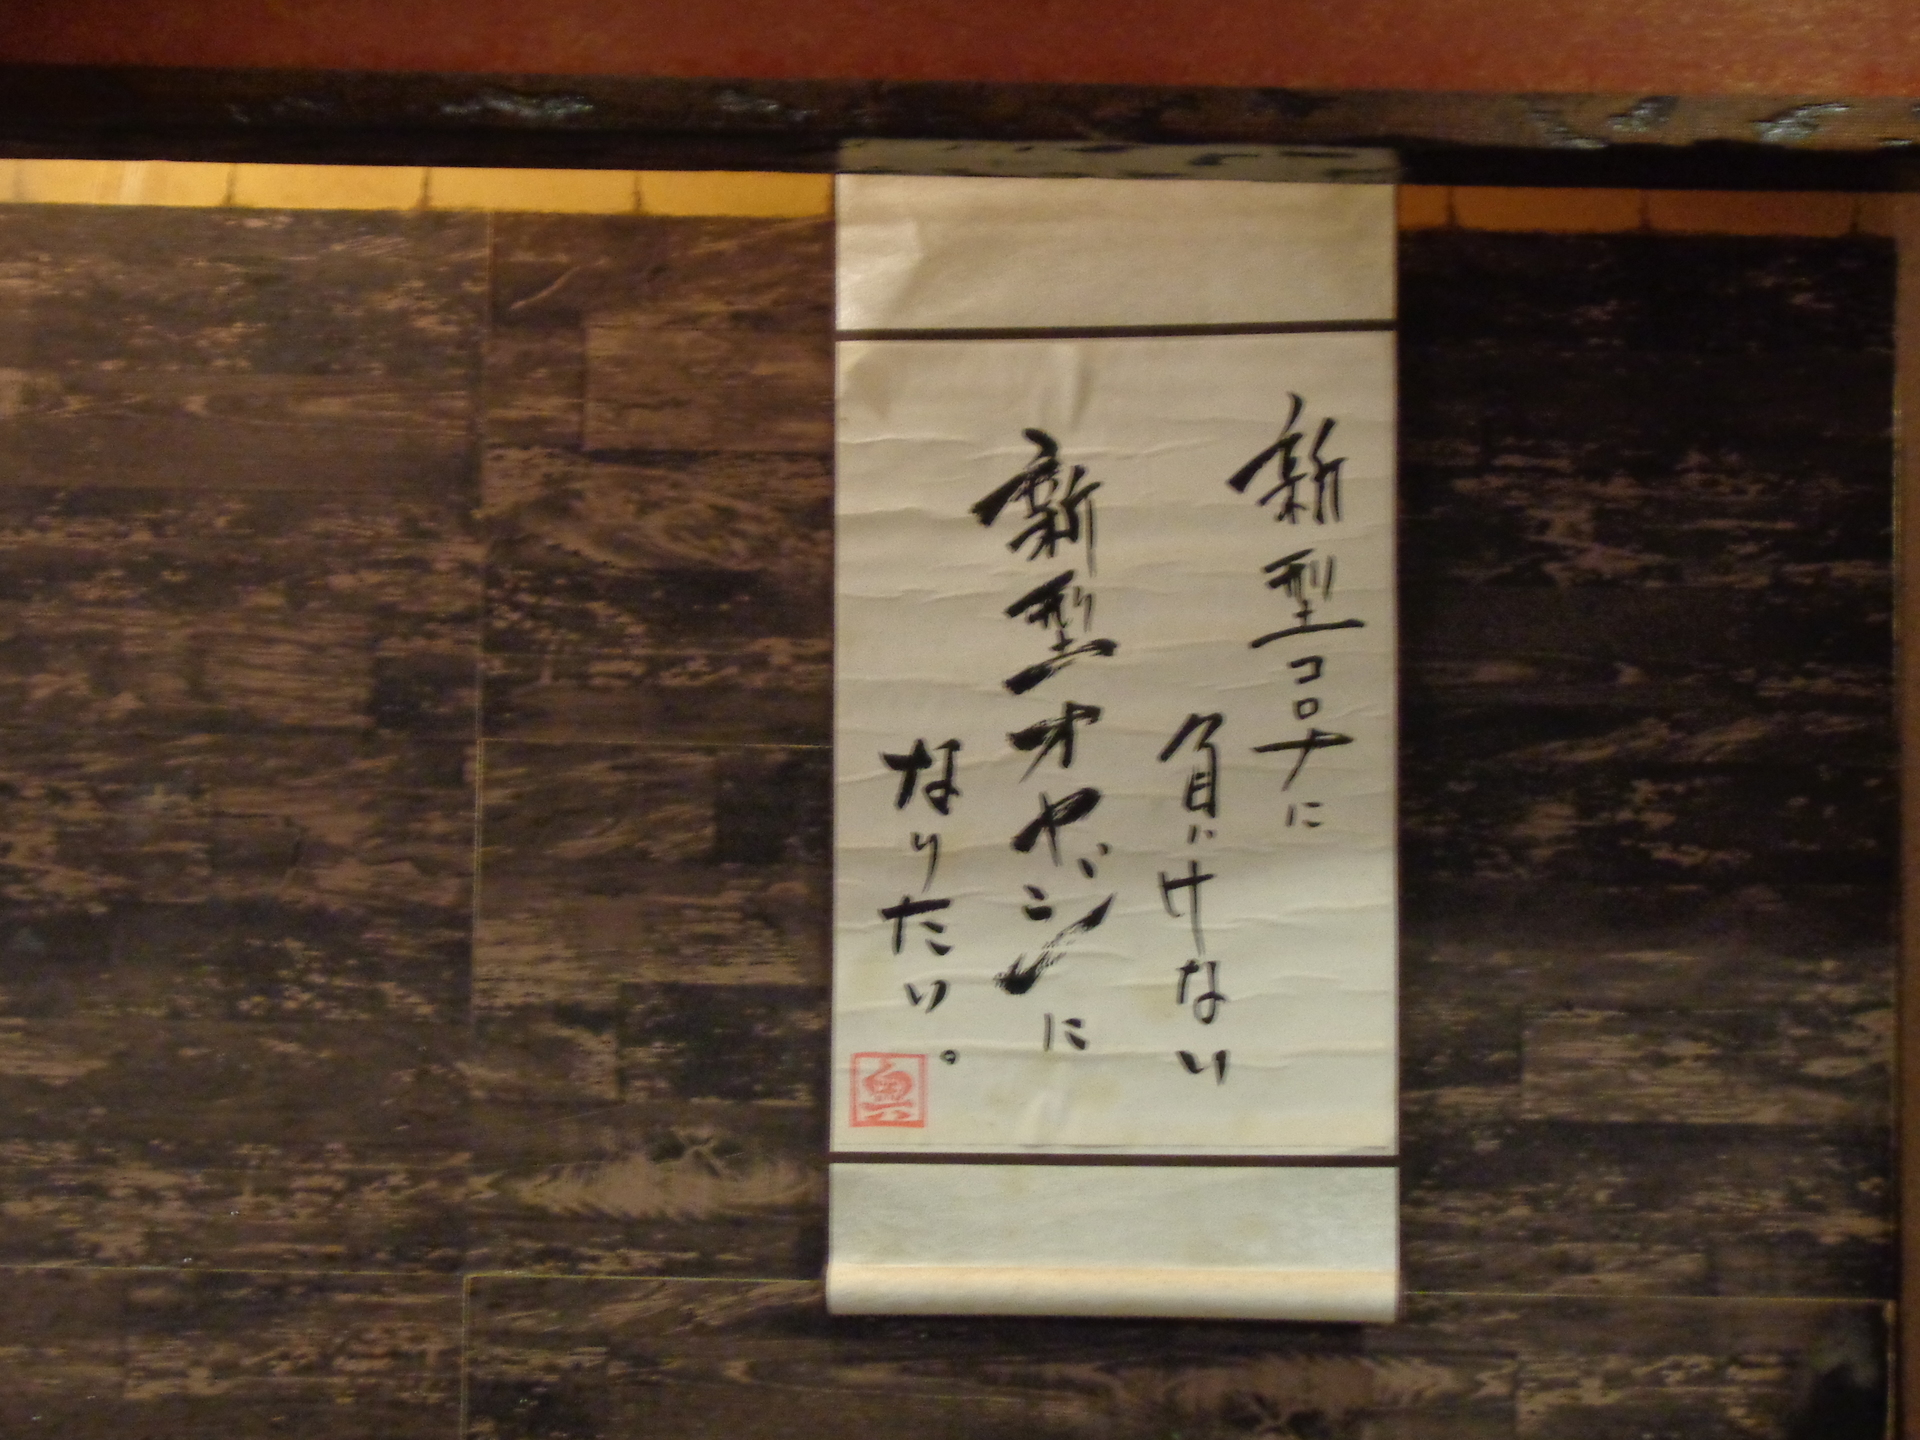 新型コロナに
負けない
新型オヤジに
なりたい。